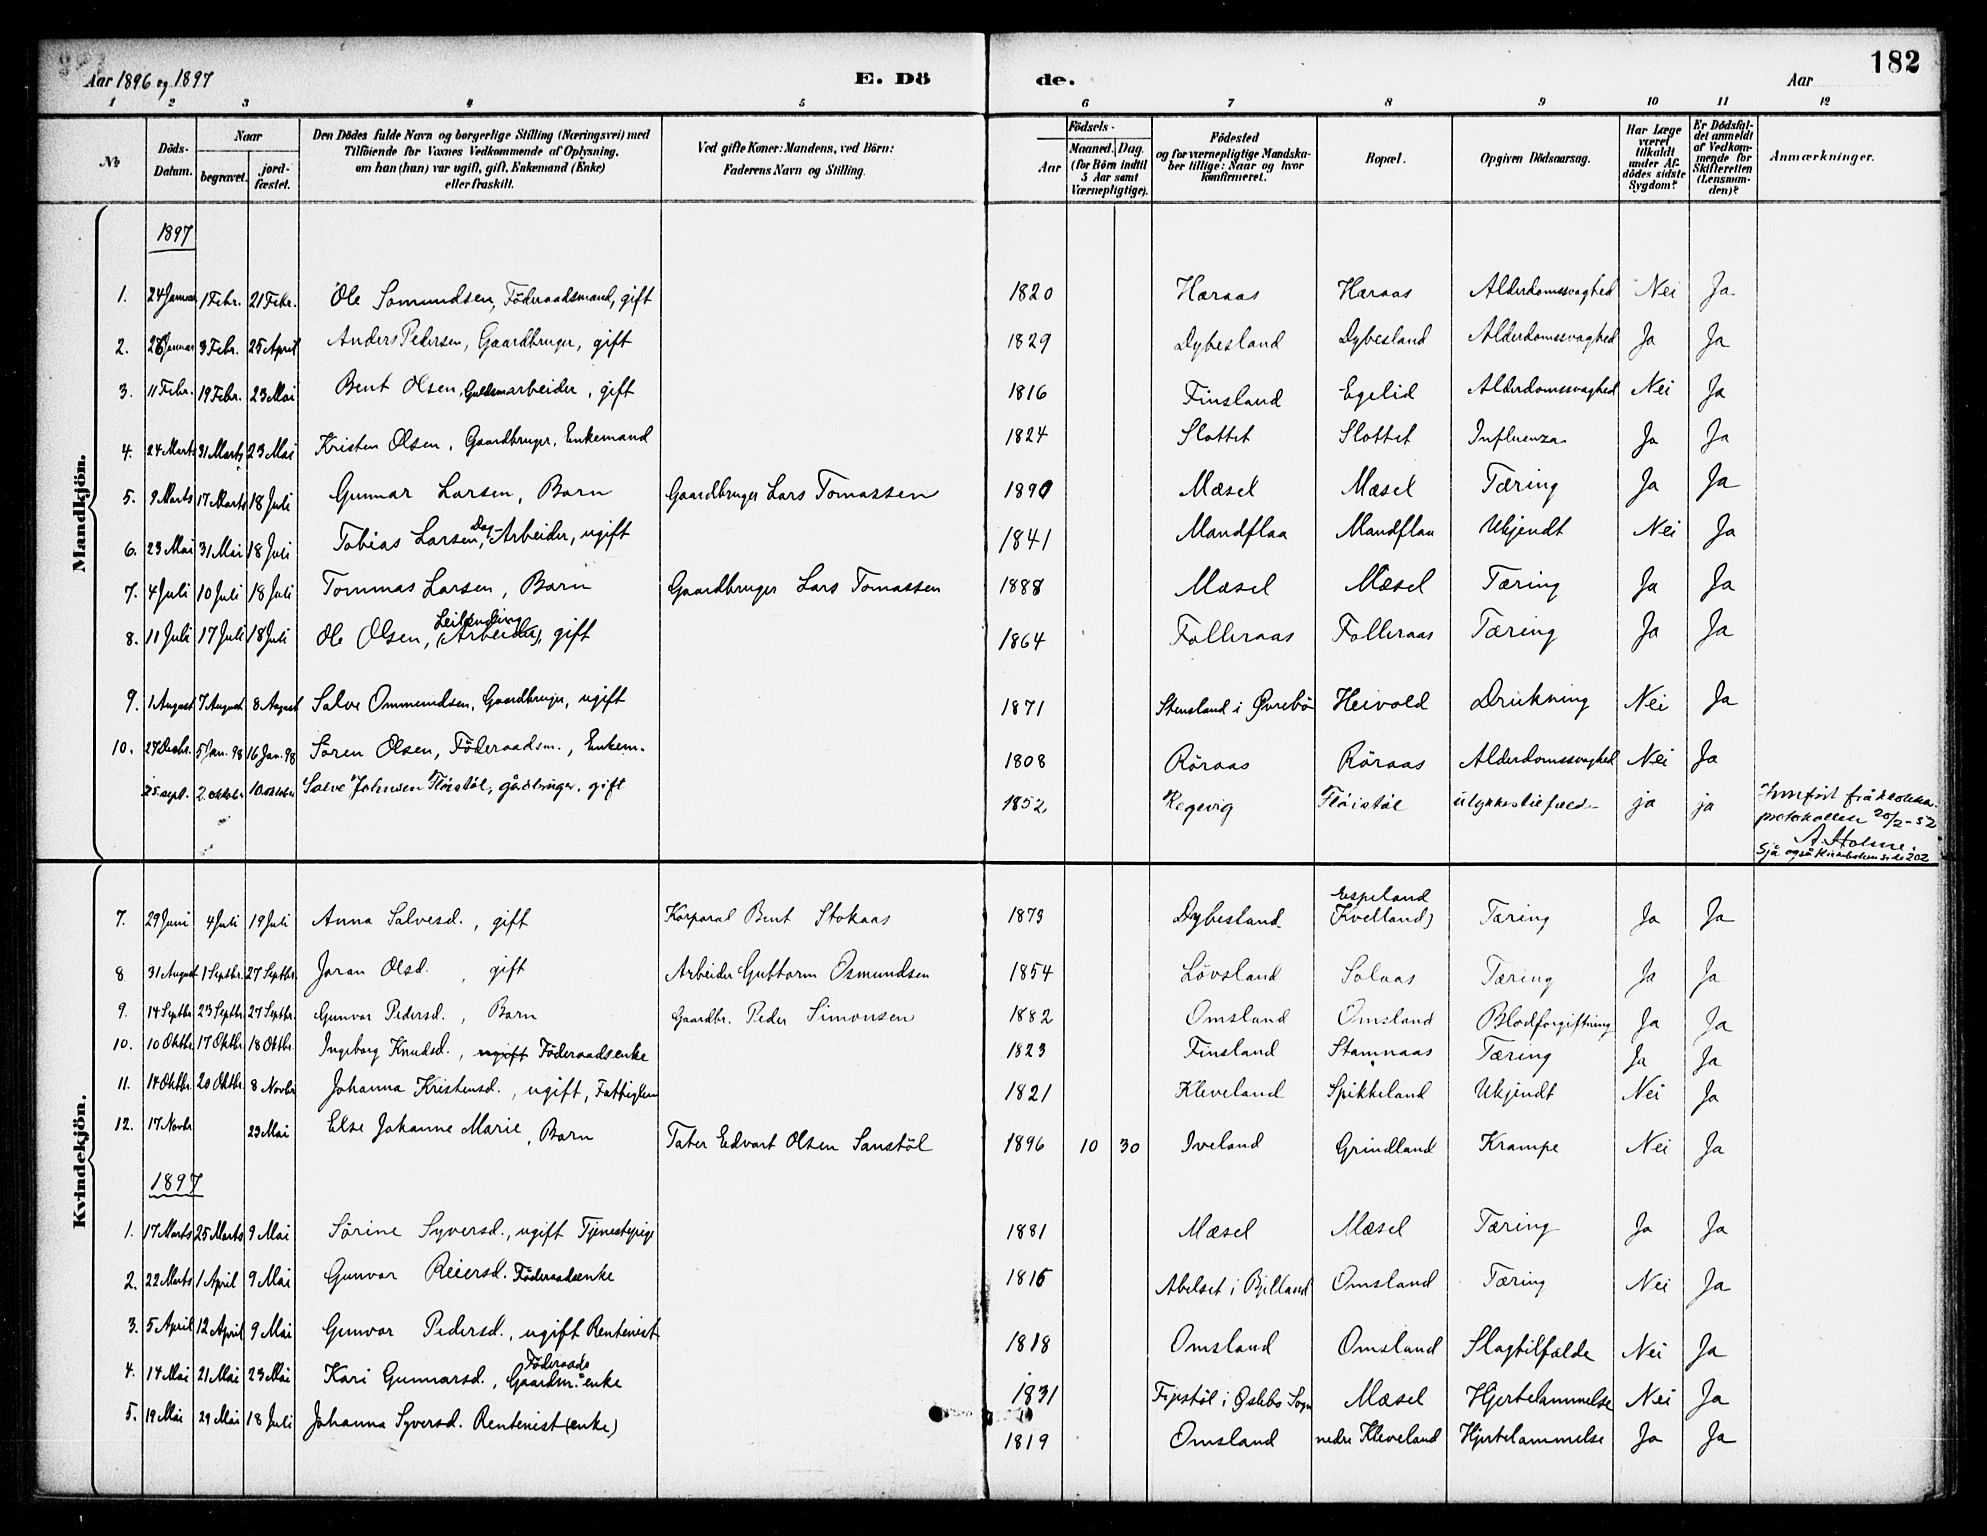 Aar 1896 og 1897 E. Dö de. Aar 182
1 2 3 4 5 6 7 8 9 10 11 12
No | Döds-Datum. | Naar begravet. | jord-fæstet. | Den Dödes fulde Navn og borgerlige Stilling (Næringsvei) med Tilföiende for Voxnes Vedkommende af Oplysning, om han (hun) var ugift, gift, Enkemand (Enke) eller fraskilt. | Ved gifte Koner: Mandens, ved Börn: Faderens Navn og Stilling. | Födsels- Aar | Maaned. Dag. (for Börn indtil 5 Aar samt Værnepligtige). | Födested og for værnepligtige Mandskaber tillige: Naar og hvor konfirmeret. | Bopæl. | Opgiven Dödsaarsag. | Har Læge været tilkaldt under Afdödes sidste Sygdom? | Er Dödsfaldet anmeldt af Vedkommende for Skifteretten (Lensmanden)? | Anmærkninger.
Mandkjön.
1897
1. 24 Januar 1 Febr. 21 Febr. Ole Somundsen, Föderaadsmand, gift 1820 Høraas Høraas Alderdomssvaghed Nei Ja
2. Januar 3 Febr. 25 April Anders Pedersen, Gaardbruger, gift 1829 Dybesland Dybesland Alderdomssvaghed Ja Ja
3. 11 Febr. 19 Febr. 23 Mai Bent Olsen, Guldsmarbeider, gift 1816 Finsland Egelid Alderdomssvaghed Nei Ja
4. 24 Marts 31 Marts 23 Mai Kristen Olsen, Gaardbruger, Enkemand 1824 Slottet Slottet Influenza Ja Ja
5. 9 Marts 17 Marts 18 Juli Gunnar Larsen, Barn Gaardbruger Lars Tomassen 1890 Mæsel Mæsel Tæring Ja Ja
6. 23 Mai 31 Mai 18 Juli Tobias Larsen, Dag-Arbeider, ugift 1841 Mandflaa Mandflaa Ukjendt Nei Ja
7. 4 Juli 10 Juli 18 Juli Tommas Larsen, Barn Gaardbruger Lars Tomassen 1888 Mæsel Mæsel Tæring Ja Ja
8. 11 Juli 17 Juli 18 Juli Ole Olsen, Leilending (Arbeider), gift 1864 Folleraas Folleraas Tæring Ja Ja
9. 1 August 7 August 8 August Salve Ommundsen, Gaardbruger, ugift 1871 Stensland i Øvrebö Heivold Drukning Nei Ja
10. 27 Decbr. 5 Jan. 98 16 Jan. 98 Sören Olsen, Föderaadsm., Enkem. 1808 Röraas Röraas Alderdomssvaghed Nei Ja
25. sept. 2. oktober 10 oktober Salve Johnsen Fløistøl, gårdbruger, gift 1852 Regevig Fløistøl ulykkestilfæde ja ja Innført frå klokkar-protokollen 20/2-52 A. Holme. Sjå også kirkeboken side 202
Kvindekjön.
7. 29 Juni 4 Juli 19 Juli Anna Salvesd., gift Korporal Bent Stokaas 1873 Dybesland Espeland (Kvelland) Tæring Ja Ja
8 31 August 1 Septbr. 27 Septbr. Joran Olsd., gift Arbeider Guttorm Osmundsen 1854 Lövsland Solaas Tæring Ja Ja
9. 14 Septbr 23 Septbr. 27 Septbr. Gunvor Pedersd., Barn Gaardbr. Peder Simonsen 1882 Omsland Omsland Blodforgiftning Ja Ja
10. 10 Oktbr. 17 Oktbr. 18 Oktbr. Ingeborg Knudsd., ugift Föderaadsenke 1823 Finsland Stamnaas Tæring Ja Ja
11. 14 Oktbr. 20 Oktbr. 8 Novbr Johanna Kristensd., ugift, Fattiglem 1821 Kleveland Spikkeland Ukjendt Nei Ja
12. 17 Novbr 23 Mai Else Johanne Marie, Barn Tater Edvart Olsen Sanstöl 1896 10 30 Iveland Grindland Krampe Nei Ja
1897
1. 17 Marts 25 Marts 9 Mai Sörine Syversd., ugift Tjenestepige 1881 Mæsel Mæsel Tæring Ja Ja
2. 22 Marts 1 April 9 Mai Gunvor Reiersd. Föderaadsenke 1816 Abelset i Bjelland Omsland Tæring Nei Ja
3. 5 April 12 April 9 Mai Gunvor Pedersd., ugift Rentenist 1818 Omsland Omsland Slagtilfælde Nei Ja
4. 14 Mai 21 Mai 23 Mai Kari Gunnarsd., Föderaads Gaardm. enke 1831 i Øslebø Sogn Mæsel Hjertelammelse Nei Ja
5. 19 Mai 29 Mai 18 Juli Johanna Syversd. Rentenist (enke) 1819 Omsland nedre Kleveland Hjertelammelse Ja Ja